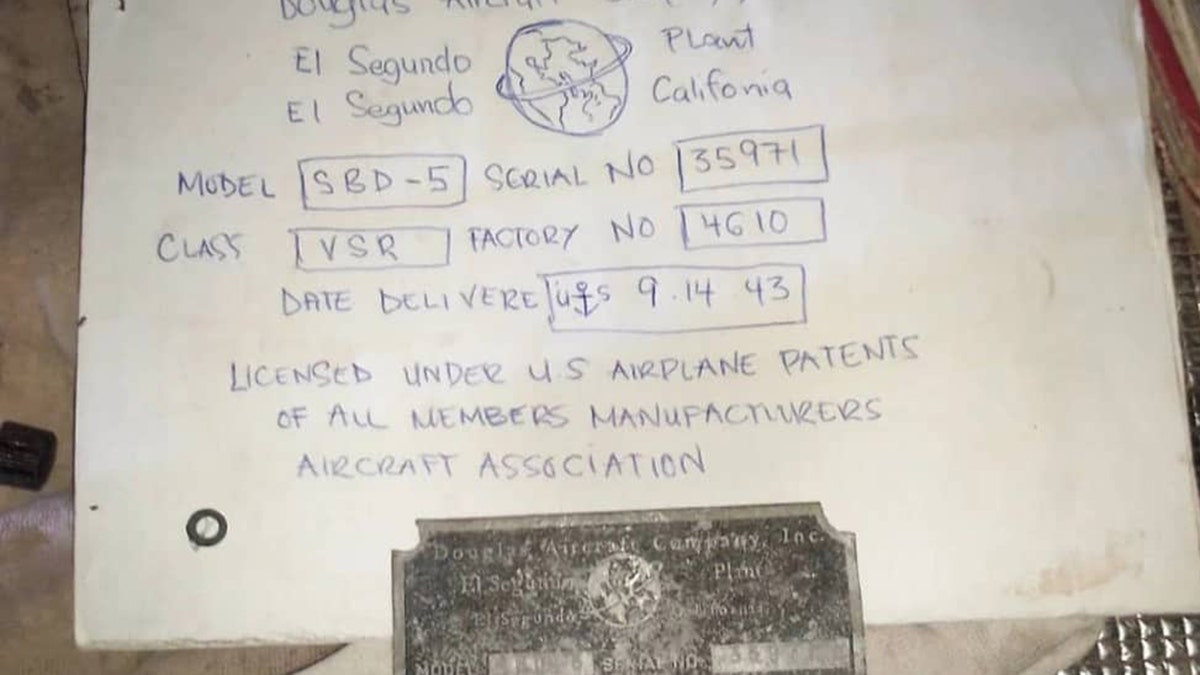 Douglas Aircraft
El Segundo Plant
El Segundo Califonia
MODEL SBD-5 SERIAL NO 35971
CLASS VSR FACTORY NO 4610
DATE DELIVERE 9.14 43
LICENSED UNDER U.S AIRPLANE PATENTS
OF ALL MEMBERS MANUFACTURERS
AIRCRAFT ASSOCIATION
Douglas Aircraft Company, Inc.
El Segundo Plant
El Segundo California
MODEL SERIAL NO.